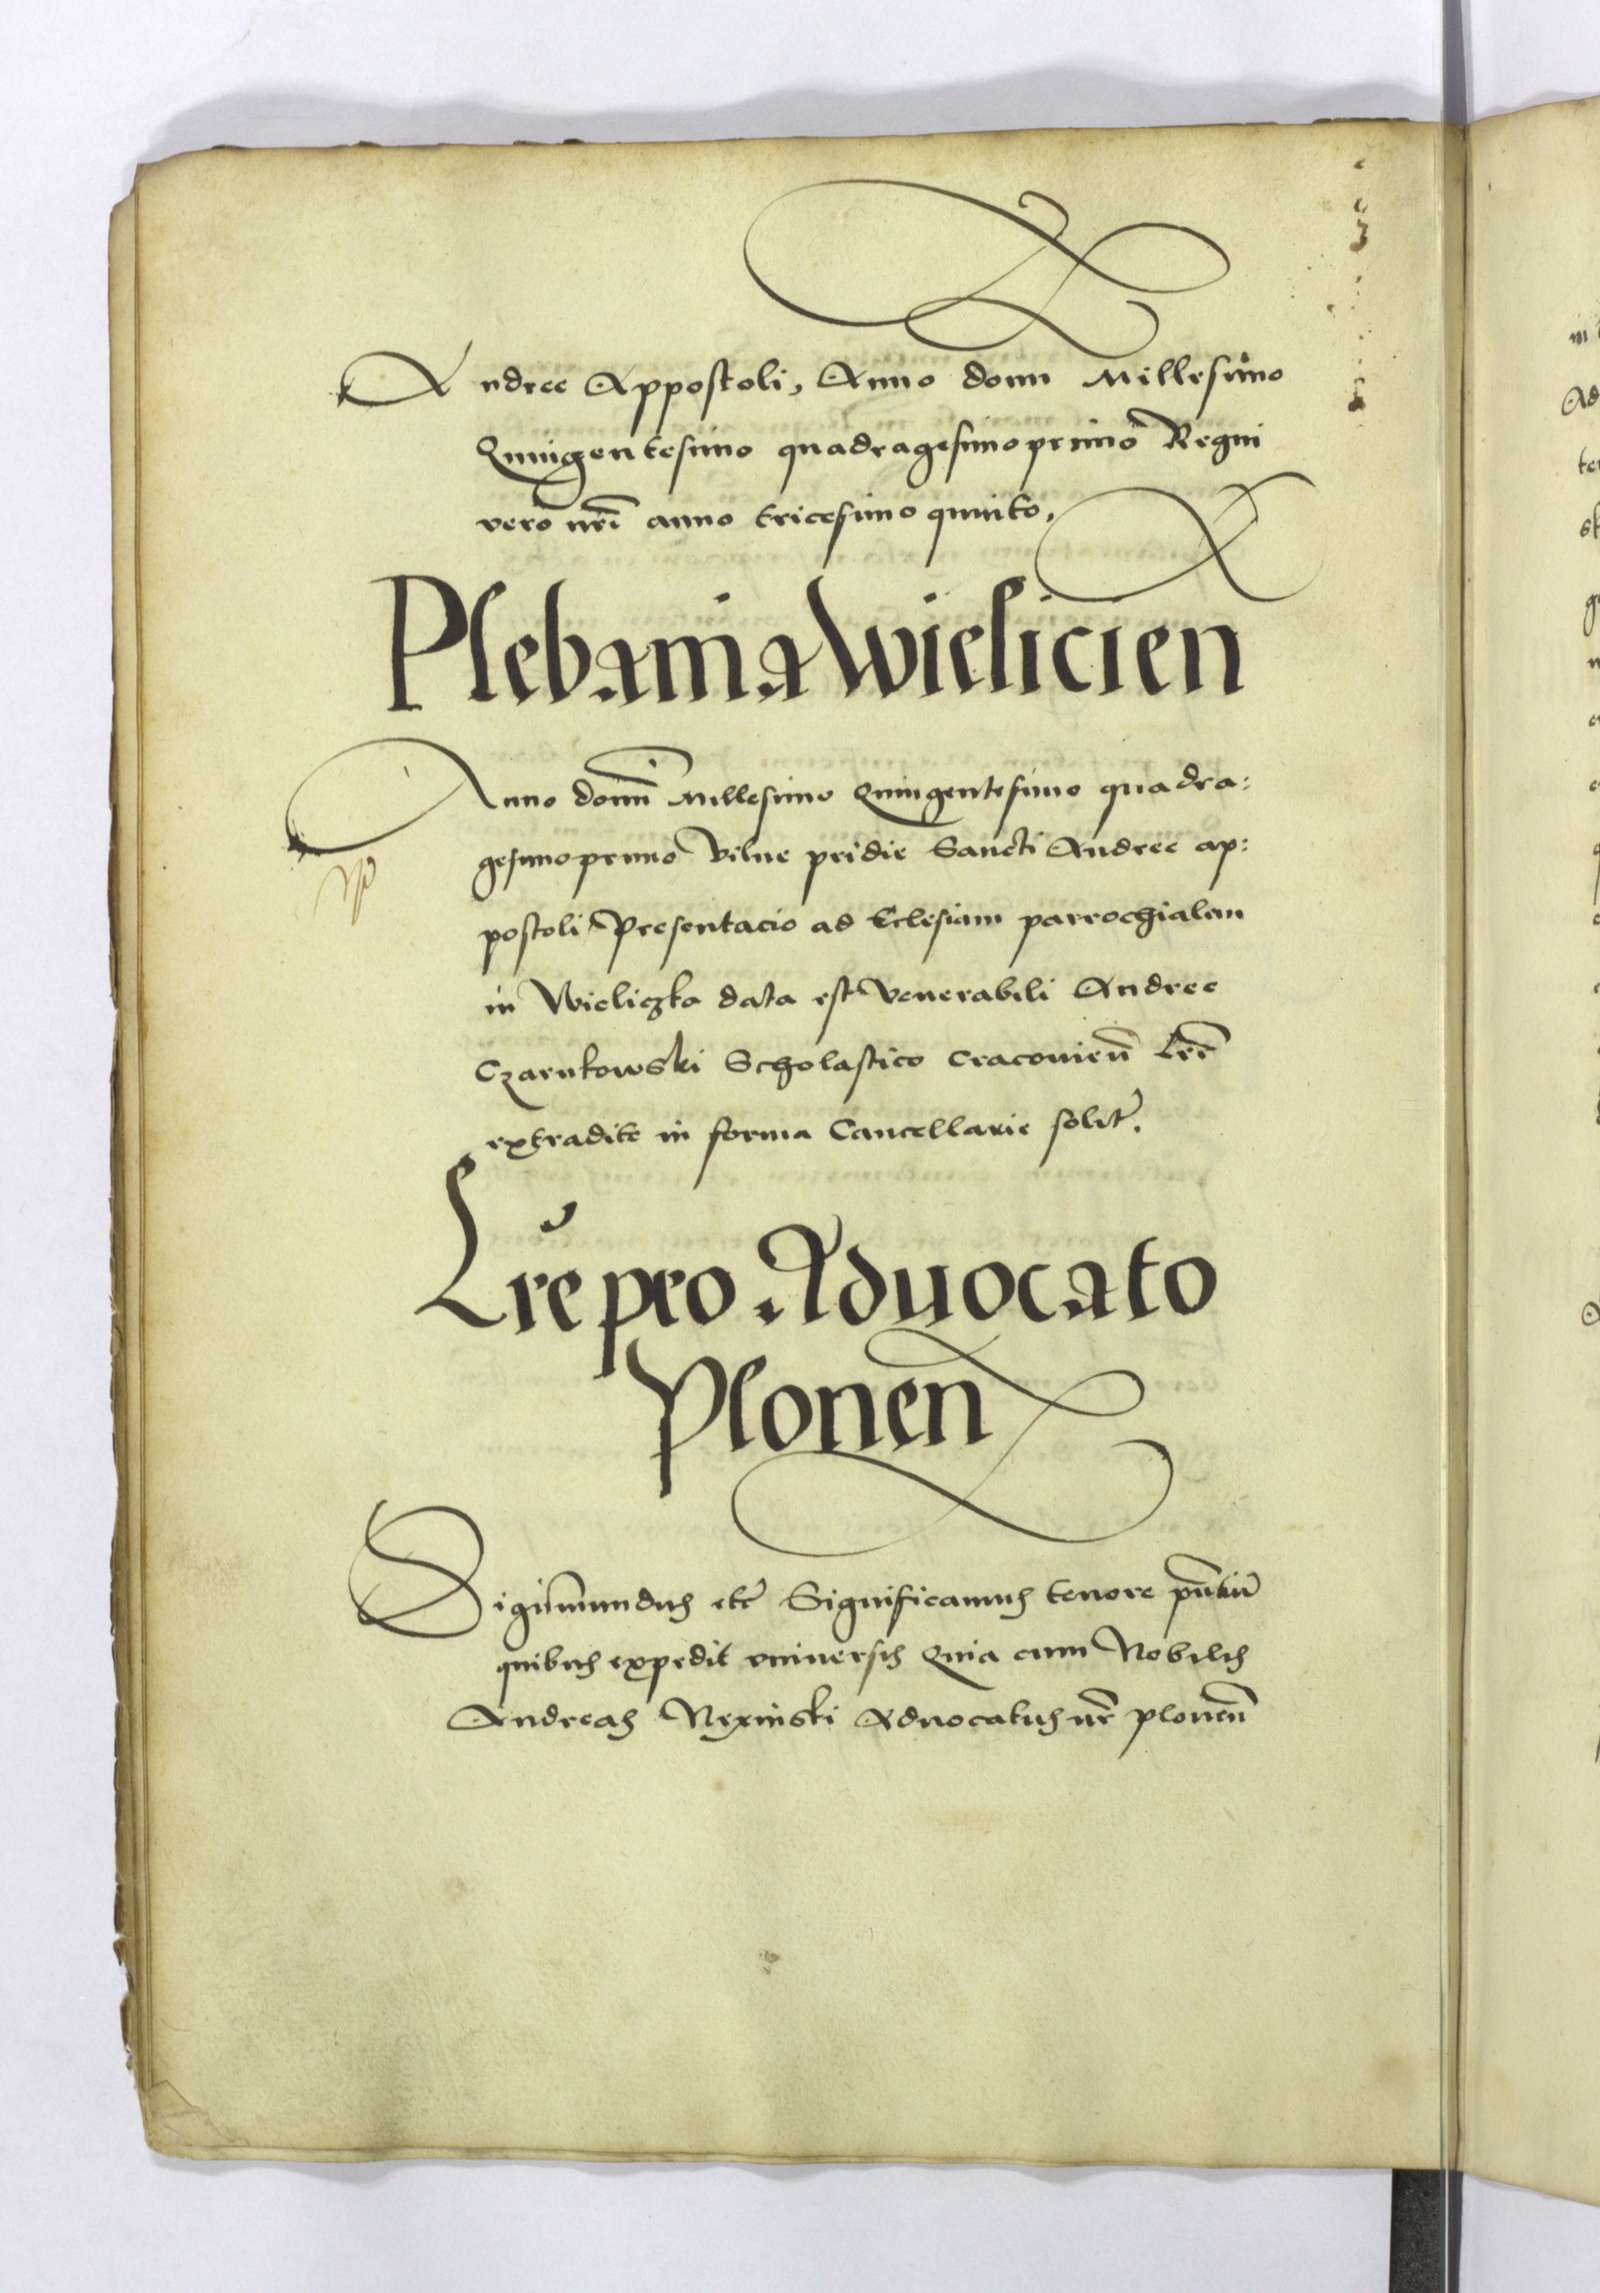 Andree Appostoli, Anno domi Millesimo
Quingentesimo quadragesimoprimo Regni
vero nri anno tricesimo quinto,
Plebania Wielicien
Anno domi Millesimo Quingentesimo quadra:
gesimoprimo Vilne pridie Sancti Andree ap:
postoli Presentacio ad Eclesiam parrochialem
in Wieliczka data est Venerabili Andree
Czarnkowski Scholastico Cracovien Lre
extradite in forma Cancellarie solit.
Lre pro Aduocato
Plonen
Sigismundus etc Significamus tenore pntiu
quibus expedit vniuersis Quia cum Nobilis
Andreas Aduocatus nr plonen